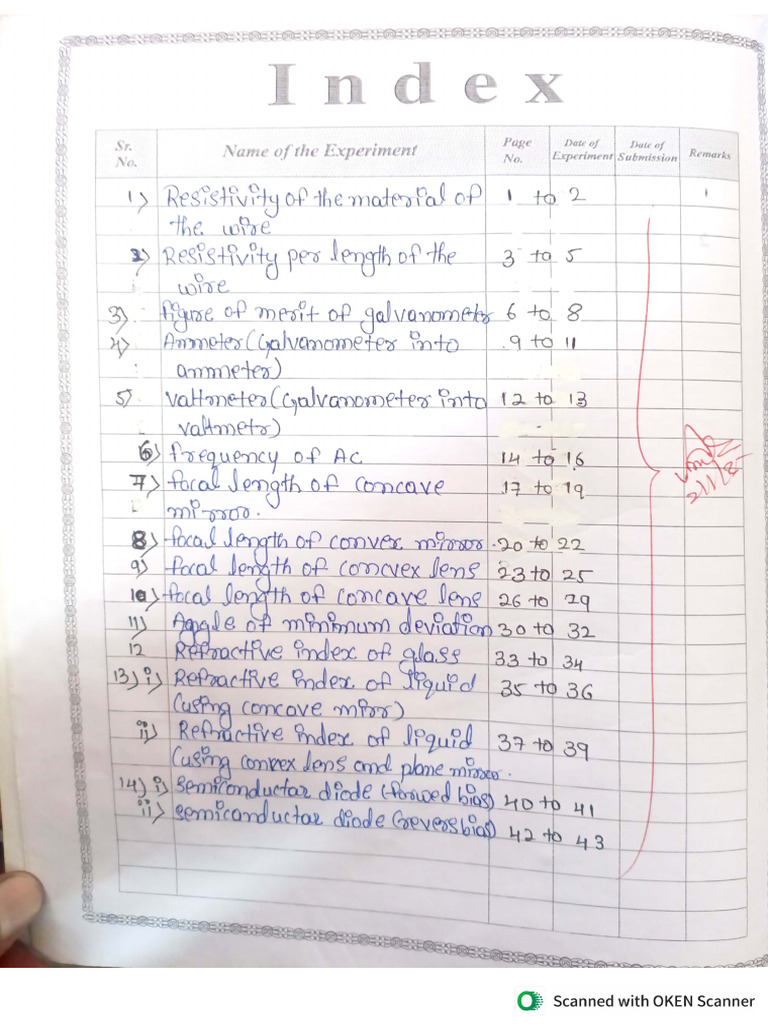 Index
Sr. No. Name of the Experiment Page No. Date of Experiment Date of Submission Remarks
1) Resistivity of the material of 1 to 2
the wire
2) Resistivity per length of the 3 to 5
wire
3) figure of merit of galvanometer 6 to 8
4) Ammeter (Galvanometer into 9 to 11
ammeter)
5) Valtmeter (Galvanometer into 12 to 13
valtmetr)
6) frequency of AC 14 to 16
7) focal length of concave 17 to 19
mirror.
8) focal length of convex mirror. 20 to 22
9) focal length of concvex lens 23 to 25
10) focal length of concave lens 26 to 29
11) Aggle of minimum deviation 30 to 32
12 Refractive index of glass 33 to 34
13) i) Refractive index of liquid 35 to 36
(using concave mirr)
ii) Refractive index of liquid 37 to 39
(using convex lens and plane mirror.
14) i) semiconductar diode (forwed bias) 40 to 41
ii) semiconductar diode (revers bias) 42 to 43
Scanned with OKEN Scanner